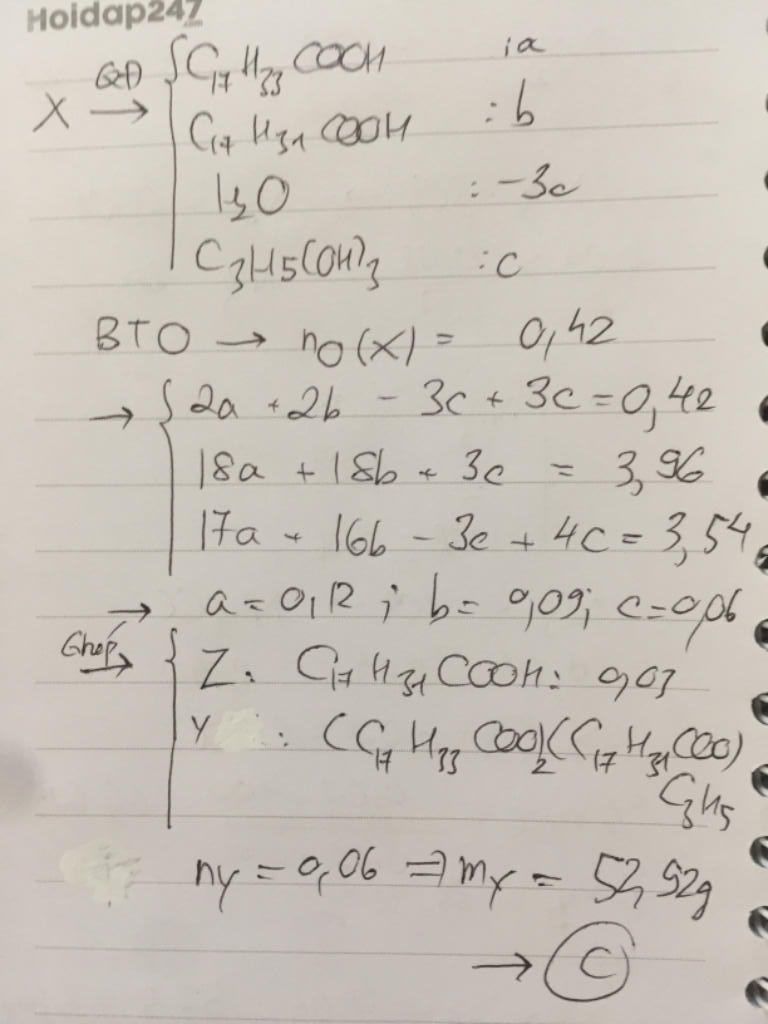 Hoidap247
.com
X QĐ → { C17H33COOH : a
C17H31COOH : b
H2O : -3c
C3H5(OH)3 : c
BTO → nO(X) = 0,42
→ { 2a + 2b - 3c + 3c = 0,42
18a + 18b + 3c = 3,96
17a + 16b - 3c + 4c = 3,54
→ a = 0,12 ; b = 0,09; c = 0,06
Ghép → { Z : C17H31COOH : 0,03
Y : (C17H33COO)2(C17H31COO)
C3H5
nY = 0,06 ⇒ mY = 52,92g
→ C